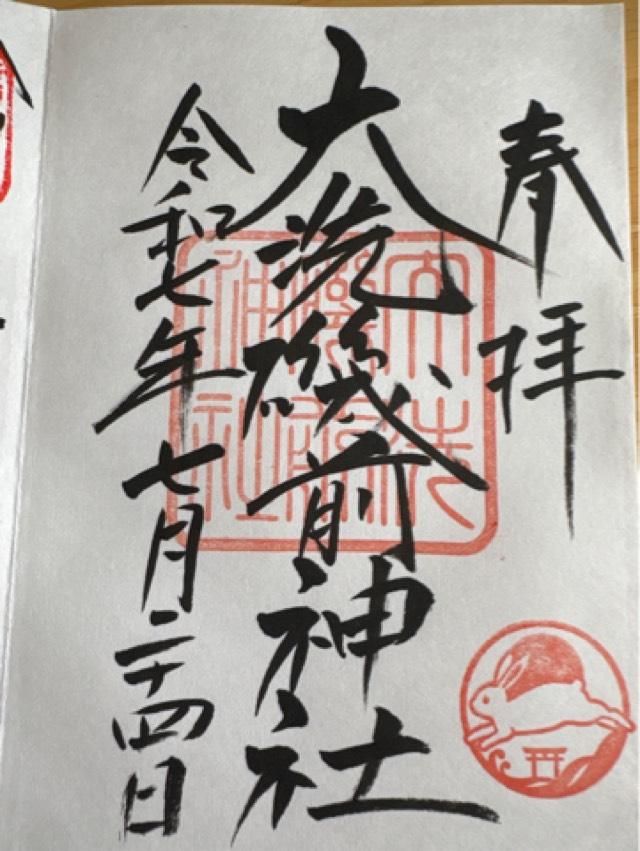 奉拝
大洗磯前神社
令和七年七月二十四日
大洗
磯前
神社